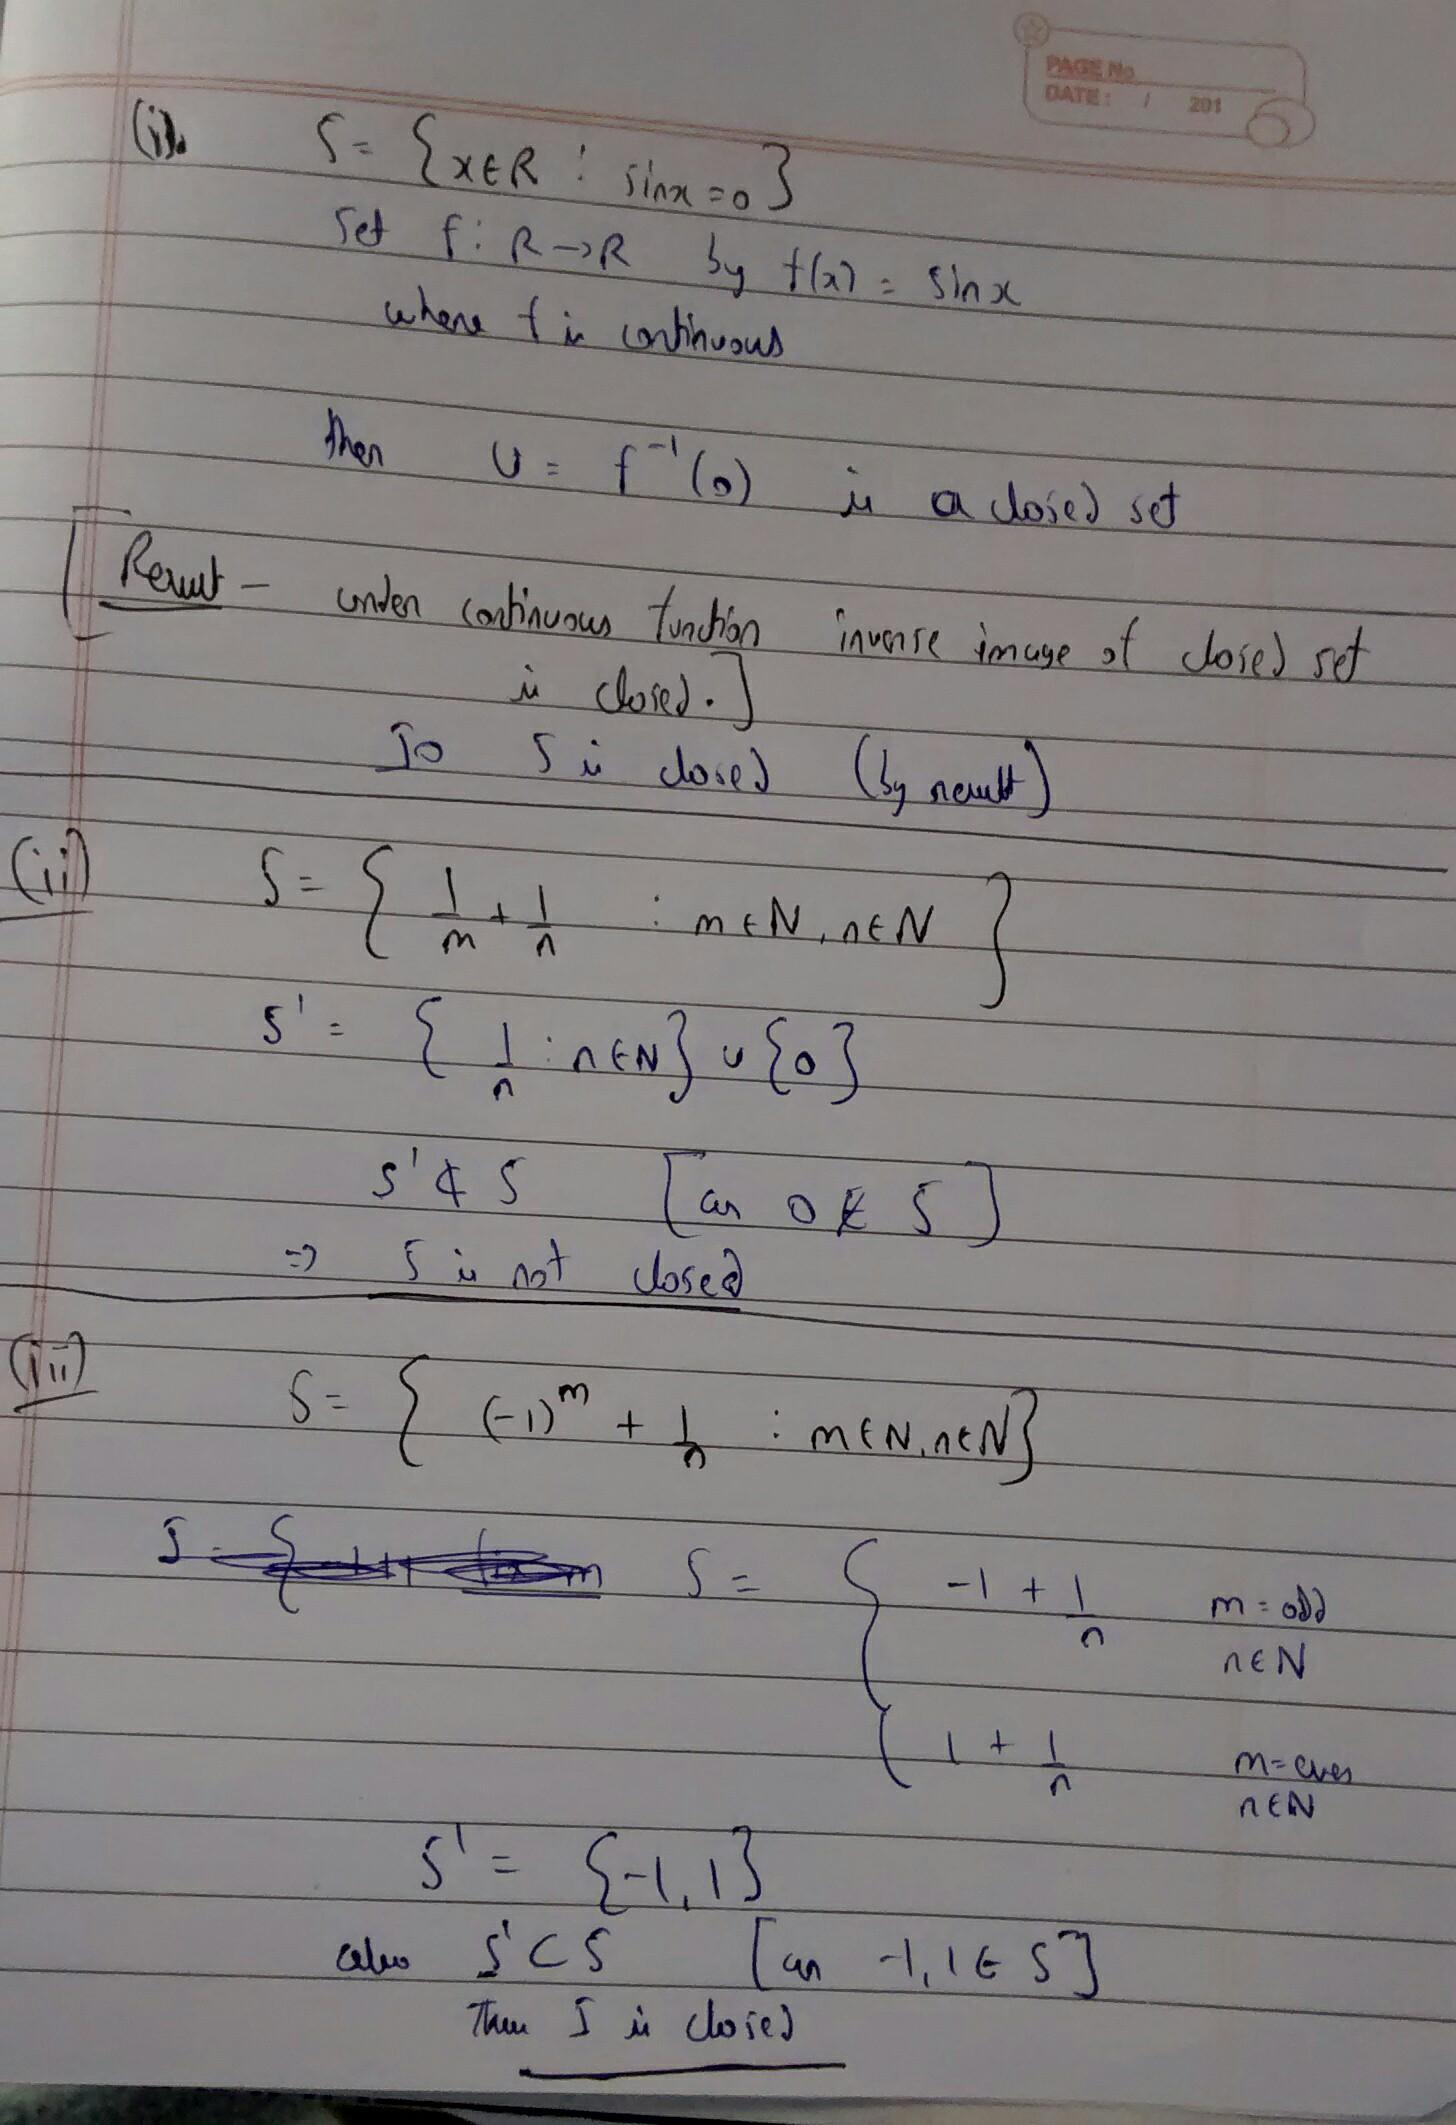 PAGE No.
DATE: / 201
(i). S = {x∈R : sinx=0}
Set f: R→R by f(x) = sinx
where f is continuous
then U = f⁻¹(0) is a closed set
[Result - under continuous function inverse image of closed set
is closed.]
So S is closed (by result)
(ii) S = { 1/m + 1/n : m∈N, n∈N }
S' = { 1/n : n∈N} ∪ {0}
S' ⊄ S [as 0 ∉ S]
⇒ S is not closed
(iii) S = { (-1)^m + 1/n : m∈N, n∈N}
S = { -1 + 1/n m = odd
n∈N
1 + 1/n m = even
n∈N
S' = {-1, 1}
also S' ⊂ S [as -1, 1 ∈ S]
Then S is closed